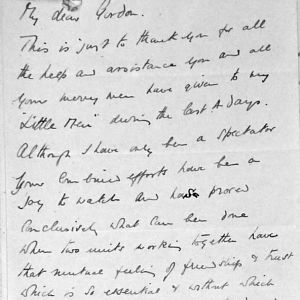 My dear Gordon.
This is just to thank you for all
the help and assistance you and all
your merry men have given to my
"Little Men" during the last 4 days.
Although I have only been a spectator
your combined efforts have been a
joy to watch and have proved
conclusively what can be done
when two units working together have
that mutual feeling of friendship & trust
which is so essential & without which